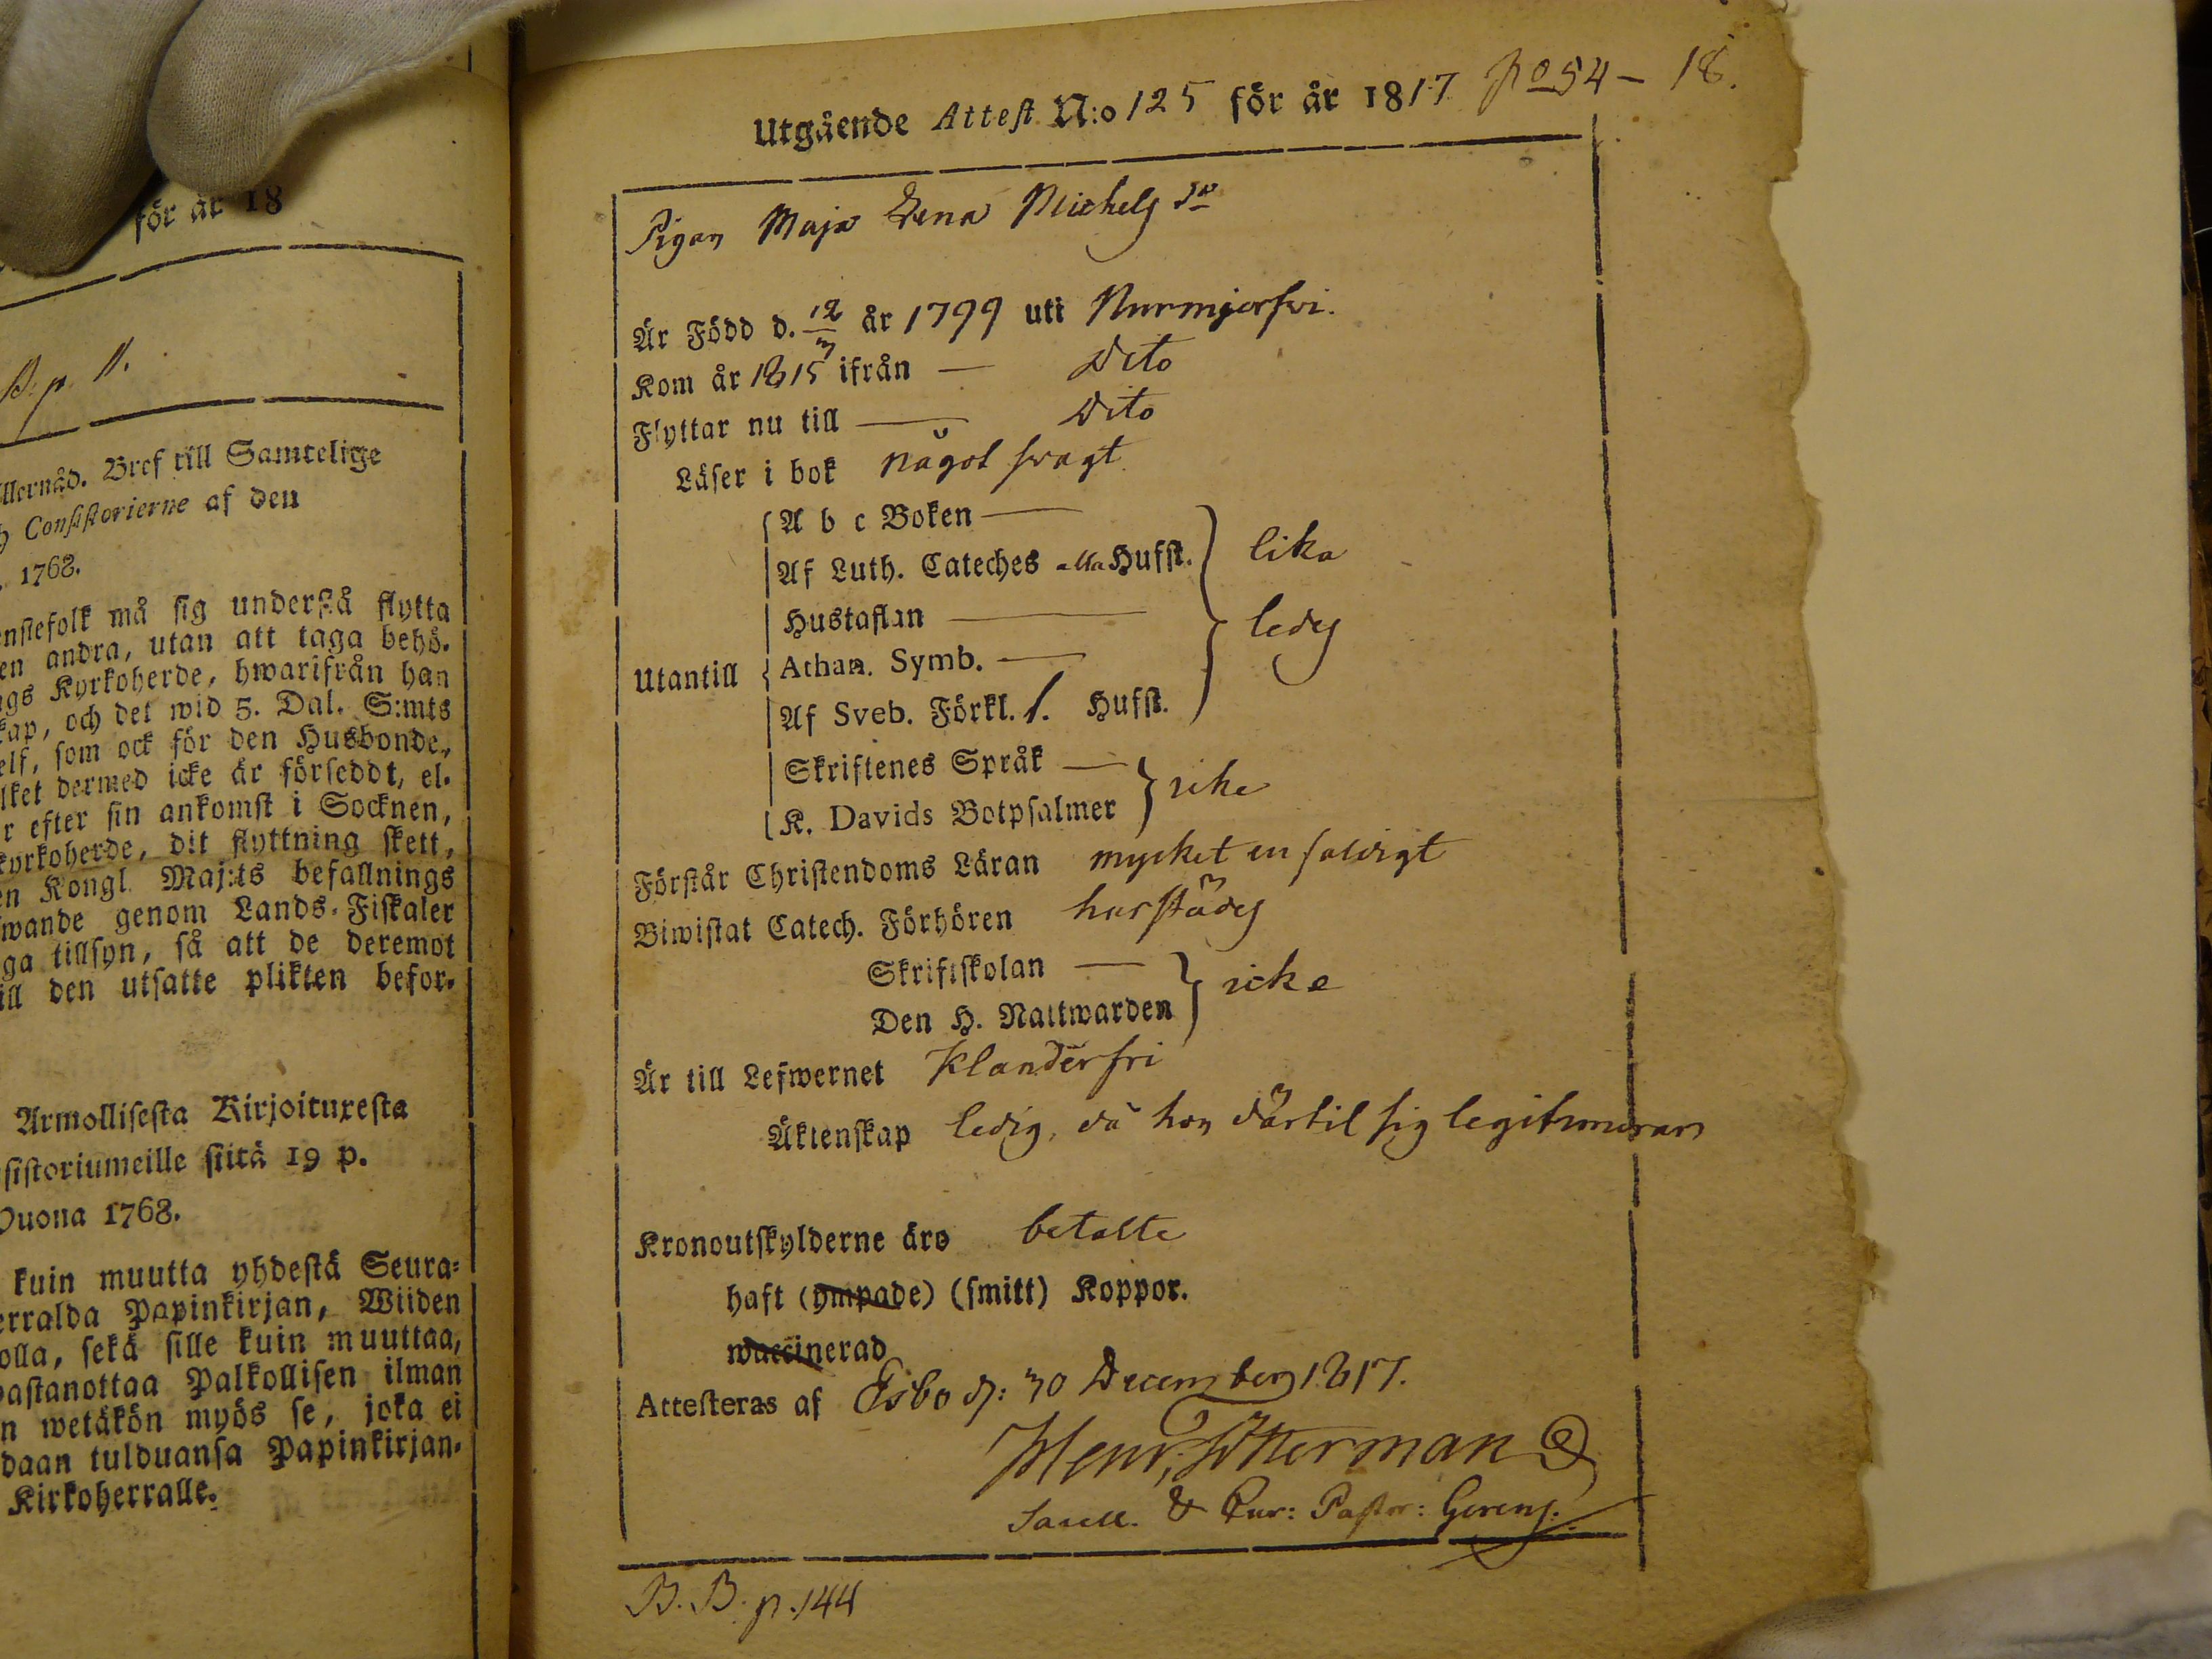 för år 18
B. p. 11.
Allernåd. Bref till Samtelige
Consistorierne af den
1768.
enstefolk må sig understå flytta
en andra, utan att taga behö-
ngs Kyrkoherde, hwarifrån han
kap, och det wid 5. Dal. S:mts
elf, som ock för den Husbonde,
lket dermed icke är försedt, el-
r efter sin ankomst i Socknen,
kyrkoherde, dit flyttning skett,
en Kongl. Maj:ts befallnings
wande genom Lands-Fiskaler
ga tillsyn, så att de deremot
ill den utsatte plikten befor-
Armollisesta Kirjoituxesta
sistoriumeille siitä 19 p.
Vuona 1768.
kuin muutta yhdestä Seura-
erralda Papinkirjan, Wiiden
olla, sekä sille kuin muuttaa,
vastanottaa Palkollisen ilman
n wetäkön myös se, joka ei
daan tulduansa Papinkirjan-
Kirkoherralle.
Utgående Attest N:o 125 för år 1817 No 54 — 18.
Pigan Maja Lena Michels Dr
Är Född d. 12/3 år 1799 uti Nurmijerfwi.
Kom år 1815 ifrån — Dito
Flyttar nu till — Dito
Läser i bok något swagt
A b c Boken —
Af Luth. Cateches alla Hufst. } lika
Hustaflan —
ledes
Utantill { Athan. Symb. —
Af Sveb. Förkl. 1. Hufst.
Skriftenes Språk —
K. Davids Botpsalmer } icke
Förstår Christendoms Läran mycket enfaldigt
Biwistat Catech. Förhören härstädes
Skriftskolan —
Den H. Nattwarden } icke
Är till Lefwernet Klanderfri
Äktenskap ledig, då hon därtil sig legitimerar
Kronoutskylderne äro betalte
haft (ympade) (smitt) Koppor.
waccinerad
Attesteras af Esbo d: 30 December 1817.
Henr. Wtterman
Sacell. & Cur: Pastor: Gerens.
B. B. p. 144